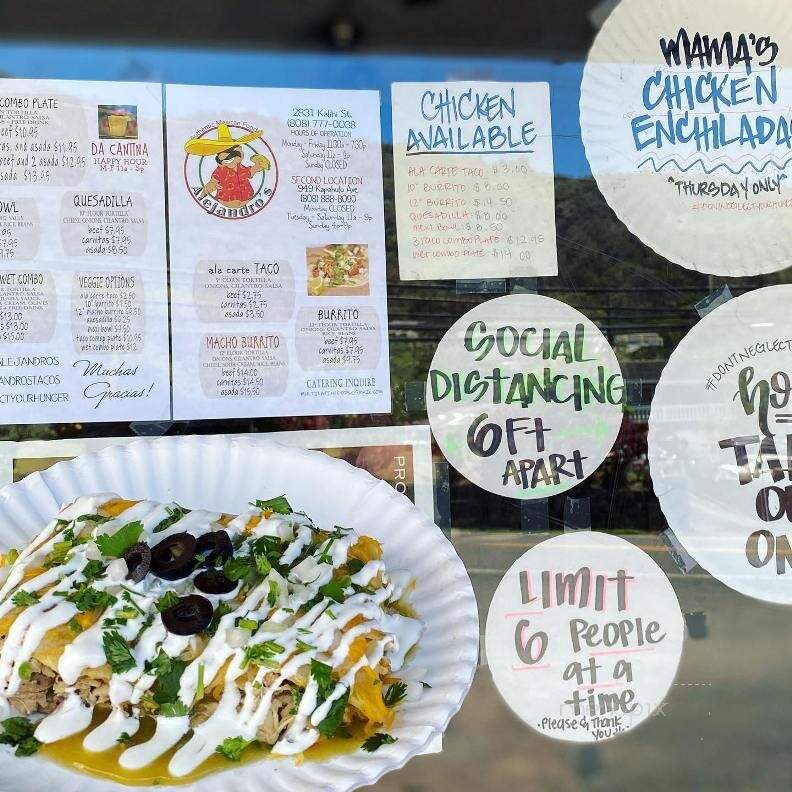 COMBO PLATE
N TORTILLA
CILANTRO SALSA
+ FREE DRINK
beef $10.95
as, and asada $11.95
beef and 2 asada $12.95
asada $13.95
DA CANTINA
HAPPY HOUR
M-F 11a - 5p
OWL
RICE BEANS
$7.95
QUESADILLA
10" FLOUR TORTILLA
CHEESE ONIONS CILANTRO SALSA
beef $7.95
carnitas $7.95
asada $8.50
WET COMBO
$13.00
$13.00
$15.00
VEGGIE OPTIONS
ala carte taco $2.50
10" burrito $7.50
12" macho burrito $13.50
quesadilla $6.25
mexi bowl $7.50
taco combo plate $10.95
wet combo plate $12
ALEJANDROS
ANDROSTACOS
CTYOURHUNGER
Muchas
Gracias!
Authentic Mexican Food
Alejandro's
2831 Kalihi St.
(808) 777-0038
HOURS OF OPERATION
Monday - Friday 11:30a - 7:30p
Saturday 11a - 9p
Sunday CLOSED
SECOND LOCATION
949 Kapahulu Ave
(808) 888-8090
Monday CLOSED
Tuesday - Saturday 11a - 9p
Sunday 4p-8p
ala carte TACO
5" CORN TORTILLA
ONIONS, CILANTRO, SALSA
beef $2.75
carnitas $2.75
asada $3.50
MACHO BURRITO
12" FLOUR TORTILLA
ONIONS CILANTRO SALSA
CHEESE SOUR CREAM, RICE BEANS
beef $14.00
carnitas $14.50
asada $15.50
BURRITO
10" FLOUR TORTILLA
ONIONS, CILANTRO, SALSA
RICE BEANS
beef $7.95
carnitas $7.95
asada $9.75
CATERING INQUIRE
CHICKEN
AVAILABLE
ALA CARTE TACO: $3.00
10" BURRITO: $8.00
12" BURRITO: $14.50
QUESADILLA: $8.00
MEXI BOWL: $8.50
3 TACO COMBO PLATE: $12.95
WET COMBO PLATE: $14.00
MAMA'S
CHICKEN
ENCHILADA
"THURSDAY ONLY"
#DONTNEGLECTYOURHUNGE
SOCIAL
DISTANCING
6FT
APART
#DONTNEGLECT
TA
O
ON
LIMIT
6 PEOPLE
at a
time
.Please & Thank
YOU!!.
PRO